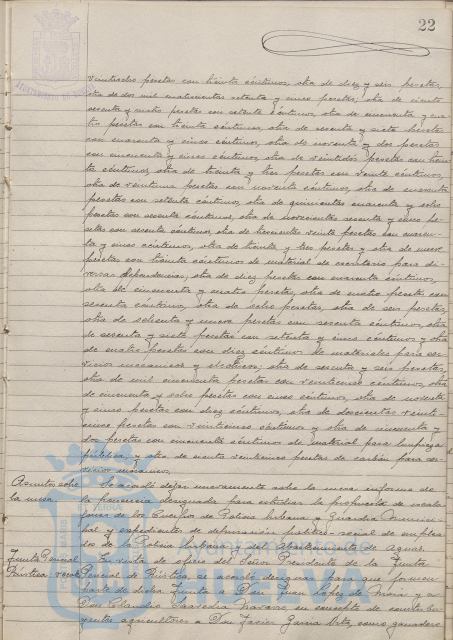 22
AYUNTAMIENTO DE
veintidos pesetas con treinta céntimos, otra de diez y seis pesetas,
otra de dos mil cuatrocientas setenta y cinco pesetas, otra de ciento
sesenta y cuatro pesetas con setenta céntimos, otra de cincuenta y cua-
tro pesetas con treinta céntimos, otra de sesenta y siete pesetas
con cuarenta y cinco céntimos, otra de noventa y dos pesetas
con cincuenta y cinco céntimos, otra de veintidos pesetas con trein-
ta céntimos, otra de treinta y tres pesetas con veinte céntimos,
otra de veintiuna pesetas con noventa céntimos, otra de cuarenta
pesetas con setenta céntimos, otra de quinientas cuarenta y ocho
pesetas con sesenta céntimos, otra de novecientas sesenta y cinco pe-
setas con sesenta céntimos, otra de trescientas veinte pesetas con cuaren-
ta y cinco céntimos, otra de treinta y tres pesetas y otra de nueve
pesetas con treinta céntimos de material de escritorio para di-
versas dependencias; otra de diez pesetas con cuarenta céntimos,
otra de cincuenta y cuatro pesetas, otra de cuatro pesetas con
sesenta céntimos, otra de ocho pesetas, otra de seis pesetas,
otra de sesenta y nueve pesetas con sesenta céntimos, otra
de sesenta y siete pesetas con setenta y cinco céntimos y otra
de cuatro pesetas con diez céntimos de materiales para ser-
vicios mecánicos y eléctricos, otra de sesenta y seis pesetas,
otra de mil cincuenta pesetas con veinticinco céntimos, otra
de cincuenta y ocho pesetas con cinco céntimos, otra de noventa
y cinco pesetas con diez céntimos, otra de doscientas veinti-
cinco pesetas con veinticinco céntimos y otra de cincuenta y
dos pesetas con cincuenta céntimos de material para limpieza
pública, y otra de ciento veinticinco pesetas de carbón para ser-
vicios mismos.
Asuntos sobre
la mesa
Se acordó dejar nuevamente sobre la mesa informe de
la ponencia designada para estudiar la propuesta de
de los Cuerpos de Policía Urbana y Guardia Munici-
pal y expedientes de depuración político-social de emplea-
dos de la Policía Urbana y del Abastecimiento de Aguas.
Junta Pericial
Rústica
En vista de oficio del Señor Presidente de la Junta
Pericial de Rústica, se acordó designar para que formen
parte de dicha Junta a Don Juan López de y a
Don Claudio Saavedra Navarro, en concepto de contribu-
yentes agricultores a Don Javier como ganadero